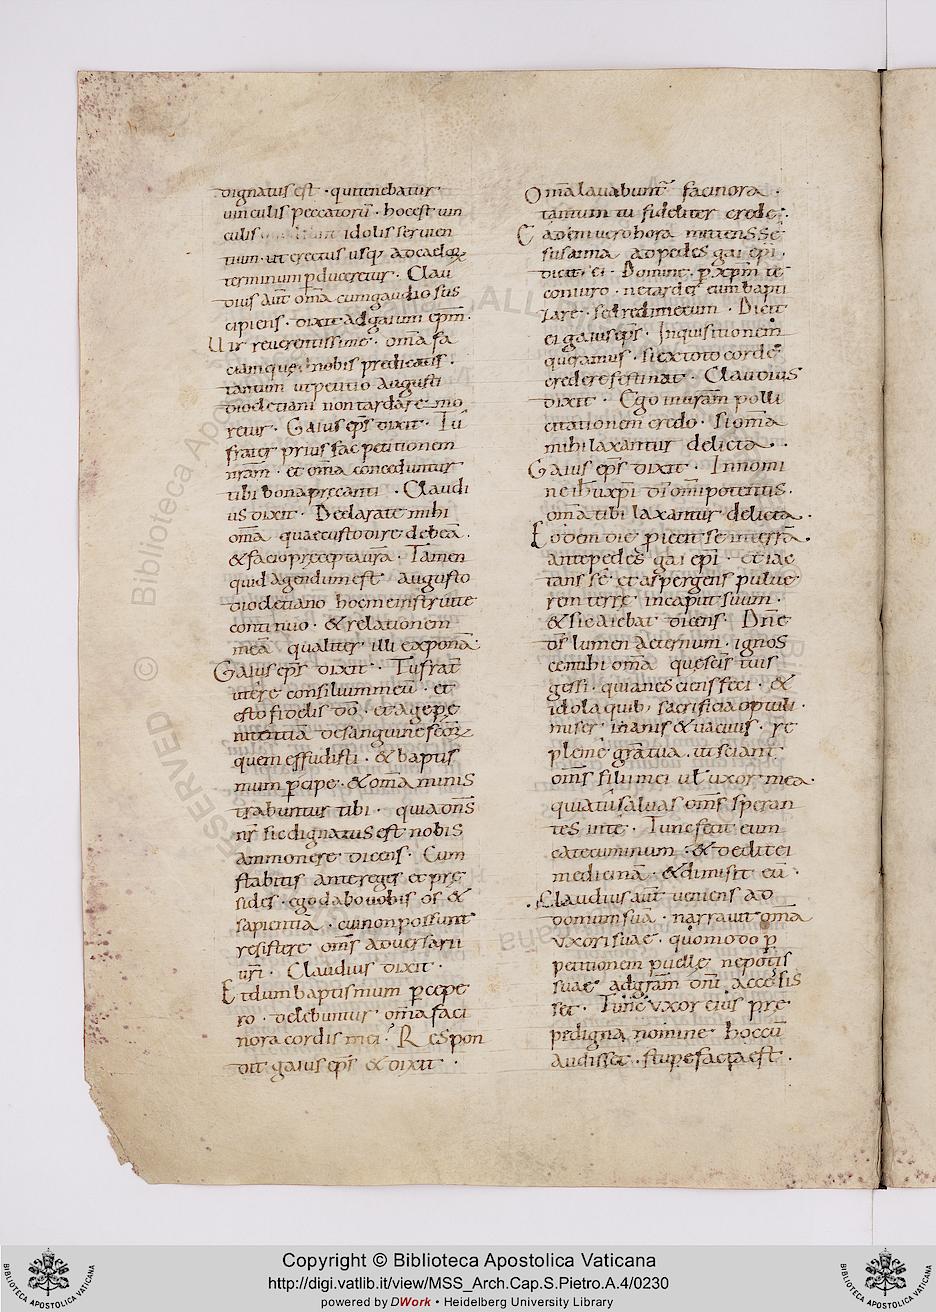 dignatus est · qui tenebatur
uinculis peccatorũ · hoc est uin
culis idolis seruien
tium · ut erectus usq; ad caeloꝝ
terminum ꝑduceretur · Clau
dius aut̃ om̃a cum gaudio sus
cipiens · dixit ad gaium ep̃m ·
Uir reuerentissime · om̃a fa
ciam que nobis predicatis ·
tantum ut petitio augusti
diocletiani non tardare mo
retur · Gaius ep̃s dixit · Tu
frater prius fac petitionem
nr̃am · et om̃a conceduntur
tibi bona precanti · Claudi
us dixit · Declarate mihi
om̃a quae custodire debeã ·
& facio precepta ur̃a · Tamen
quid agendum est augusto
diocletiano hoc me instruite
continuo · & relationem
meã qualiter illi exponã ·
Gaius ep̃s dixit · Tu frat̃
utere consilium meũ · et
esto fidelis dõ · et age pe
nitentiã de sanguine sc̃oꝝ
quem effudisti · & baptis
mum ꝑcipe · & om̃a minis
trabuntur tibi · quia dñs
nr̃ sic dignatus est nobis
ammonere dicens · Cum
stabitis ante reges et pre
sides · ego dabo uobis os &
sapientiã · cui non possunt
resistere om̃s aduersarii
ur̃i · Claudius dixit ·
Et dum baptismum ꝑcepe
ro · delebuntur om̃a faci
nora cordis mei · Respon
dit gaius ep̃s & dixit ·
Om̃a lauabunt̃ facinora ·
tantum tu fideliter crede ·
Eadem uero hora mittens se
susanna ad pedes gai ep̃i ·
dicit ei · Domine · ꝑ xp̃m te
coniuro · ne tardes eum bapti
zare · sed redime eum · Dicit
ei gaius ep̃s · Inquisitionem
queramus · si ex toto corde
credere festinat · Claudius
dixit · Ego in ur̃am polli
citationem credo · si om̃a
mihi laxantur delicta ·
Gaius ep̃s dixit · In nomi
ne ih̃u xp̃i dĩ omnipotentis ·
om̃a tibi laxantur delicta ·
Eodem die ꝓiecit se in terrã ·
ante pedes gai ep̃i · et iac
tans se et aspergens pulue
rem terre in caput suum ·
& sic aiebat dicens · Dñe
ds̃ lumen aeternum · ignos
ce mihi om̃a que scis tuis
gessi · quia nesciens feci · &
idola quib; sacrificia optuli ·
miser inanis & uacuus · re
ple me gratia · ut sciant
om̃s filii mei uel uxor mea ·
quia tu saluas om̃s speran
tes in te · Tunc fecit eum
catecuminum · & dedit ei
medicinã · & dimisit eũ ·
Claudius aut̃ ueniens ad
domum suã · narrauit om̃a
uxori suae · quomodo ꝑ
petitionem puelle nepotis
suae ad gr̃am dñi accessis
set · Tunc uxor eius pre
pedigna nomine hoc cũ
audisset · stupefacta est ·
Copyright © Biblioteca Apostolica Vaticana
http://digi.vatlib.it/view/MSS_Arch.Cap.S.Pietro.A.4/0230
powered by DWork • Heidelberg University Library